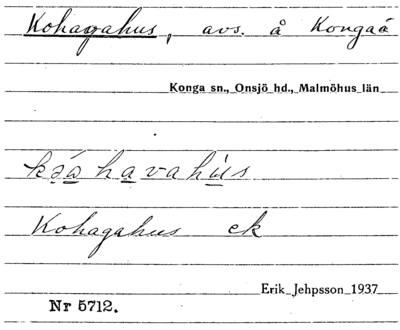 Kohagahus, avs. å Kongaå
Konga sn., Onsjö hd., Malmöhus län
kǝáhavahùs
Kohagahus ek
Erik Jehpsson 1937
Nr 5712.